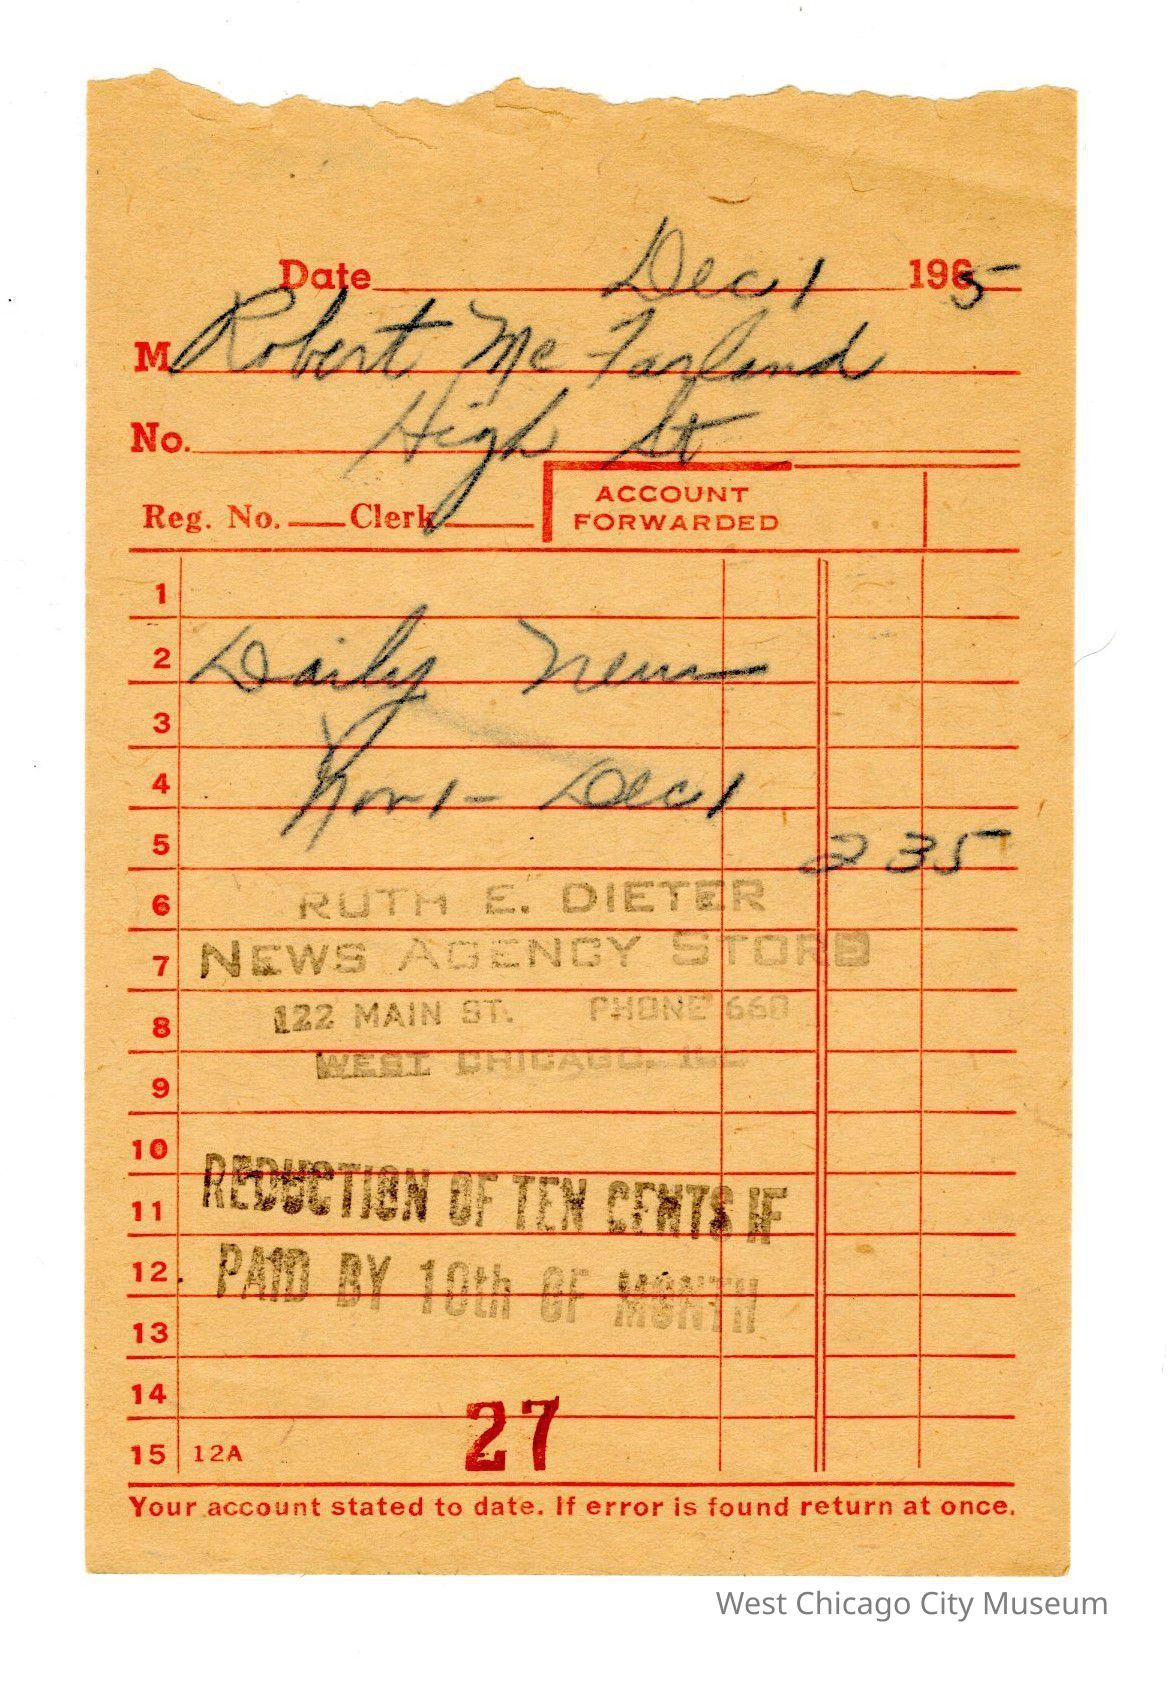 Date Dec 1 1965
M Robert McFarland
No. High St
Reg. No. Clerk ACCOUNT FORWARDED
1
2 Daily News
3
4 Nov 1 - Dec 1
5 2 35
6 RUTH E. DIETER
7 NEWS AGENCY STORE
8 122 MAIN ST. PHONE 660
9 WEST CHICAGO, ILL
10
11 REDUCTION OF TEN CENTS IF
12 PAID BY 10th OF MONTH
13
14
27
15 12A
Your account stated to date. If error is found return at once.
West Chicago City Museum